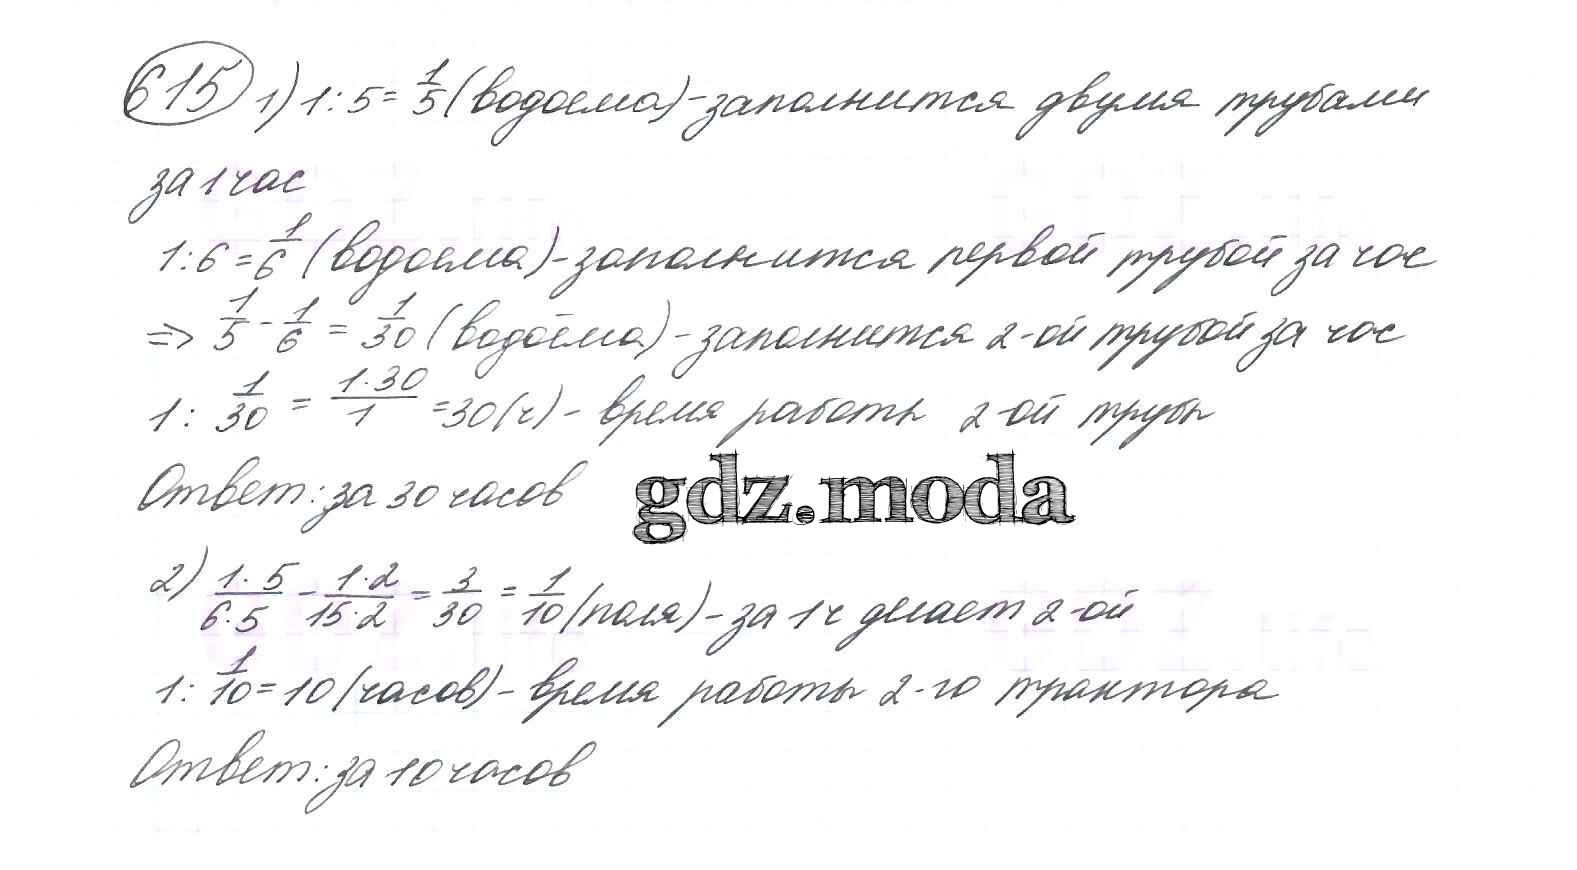 615 1) 1:5=1/5 (водоема)-заполнится двумя трубами
за 1 час
1:6=1/6 (водоема)-заполнится первой трубой за час
=> 1/5 - 1/6 = 1/30 (водоёма)-заполнится 2-ой трубой за час
1: 1/30 = 1·30/1 =30(ч)- время работы 2-ой трубы
Ответ: за 30 часов
gdz.moda
2) 1·5/6·5 - 1·2/15·2 = 3/30 = 1/10 (поля)-за 1ч делает 2-ой
1: 1/10=10 (часов)- время работы 2-го трактора
Ответ: за 10 часов